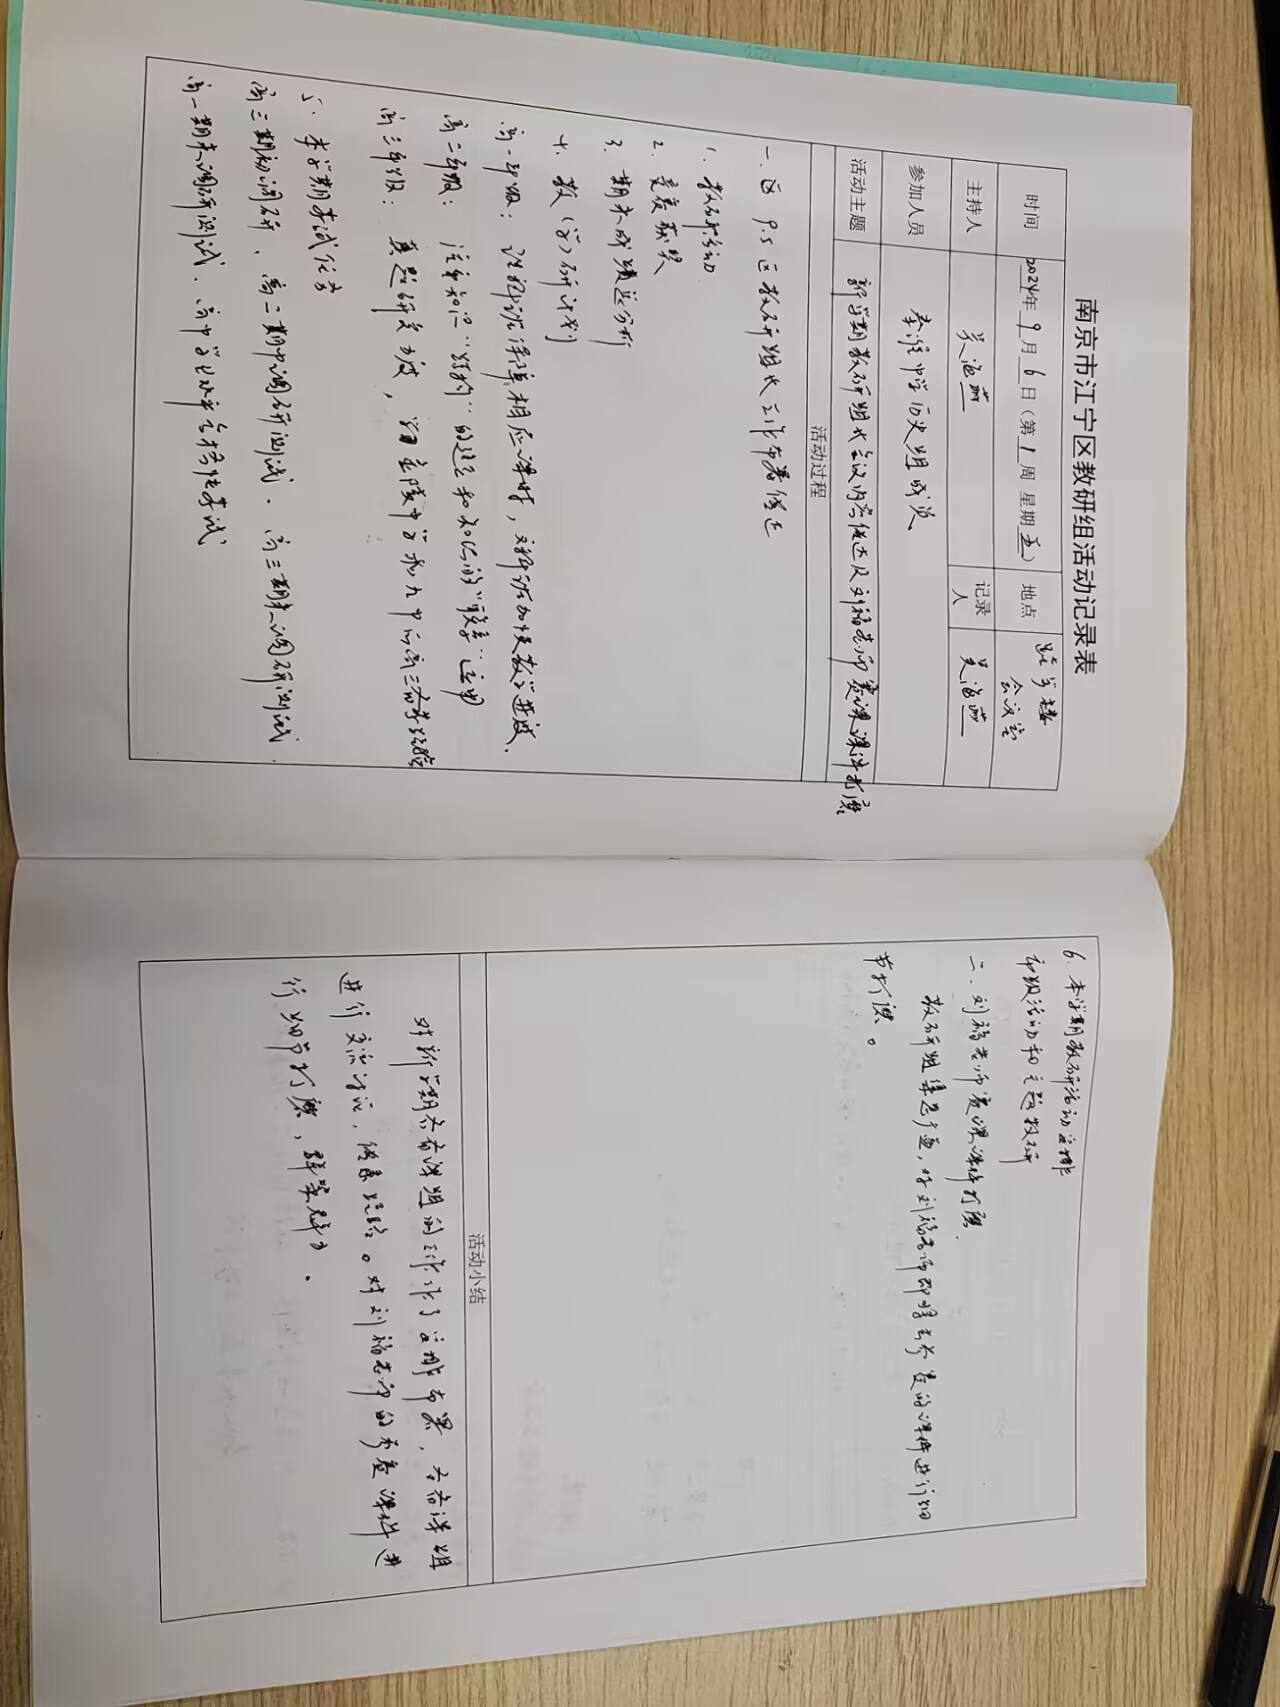 南京市江宁区教研组活动记录表
时间 2024年9月6日（第1周 星期五） 地点 楼
会议室
主持人 吴海燕 记录人 吴海燕
参加人员 秦淮中学历史组成员
活动主题 新学期教研组长会议内容传达及刘福老师赛课课件打磨
活动过程
一.区 9.5区教研组长工作布署传达
1. 教研活动
2. 竞赛获奖
3. 期末成绩 分析
4. 教（学）研计划
高一年级： 班保障相应课时，文科班加快教学进度.
高二年级： 注重知识“结构”的建立和知识的“联系”运用
高三年级： 真题研究 度， 金陵中学和九中 高三备考经验
5. 本学期考试任务
高三期初调研、高二期中调研测试、高三期末调研测试、
高一期末调研测试、高中学业水平合格性考试
6. 本学期教研活动安排
市级活动和主题教研
二. 刘福老师赛课课件打磨.
教研组集思广益，对刘福老师即将去参赛的课件进行细
节打磨。
活动小结
对新学期各备课组的工作作了安排布署，各备课组
进行交流讨论， 。对刘福老师的参赛课件进
行细节打磨，群策群力。